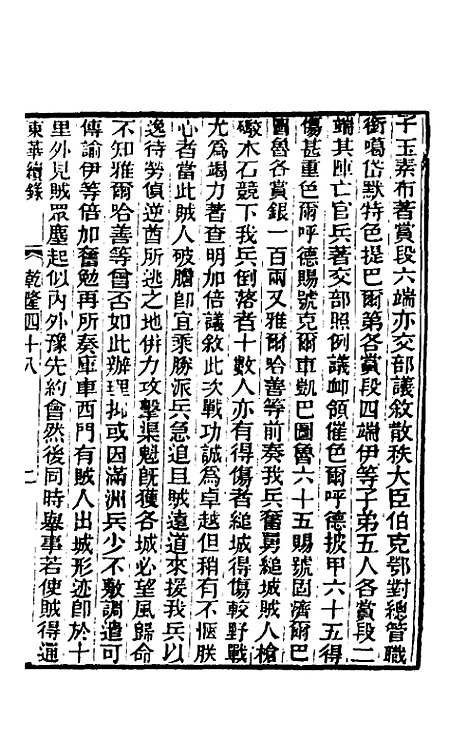 子玉素布著賞段六端亦交部議敘散秩大臣伯克鄂對總管職
銜噶岱默特色提巴爾第各賞段四端伊等子弟五人各賞段二
端其陣亡官兵著交部照例議卹領催色爾呼德披甲六十五得
傷甚重色爾呼德賜號克爾車凱巴圖魯六十五賜號固濟爾巴
圖魯各賞銀一百兩又雅爾哈善等前奏我兵奮勇縋城賊人槍
礮木石競下我兵倒落者十數人亦有得傷者縋城得傷較野戰
尤為竭力著查明加倍議敘此次戰功誠為卓越但稍有不愜朕
心者當此賊人破膽卽宜乘勝派兵急追且賊遠道來援我兵以
逸待勞偵逆酋所逃之地併力攻擊渠魁旣獲各城必望風歸命
不知雅爾哈善等曾否如此辦理抑或因滿洲兵少不敷調遣可
傳諭伊等倍加奮勉再所奏庫車西門有賊人出城形迹卽於十
里外見賊眾塵起似內外豫先約會然後同時舉事若使賊得通
東華續錄 乾隆四十八 二